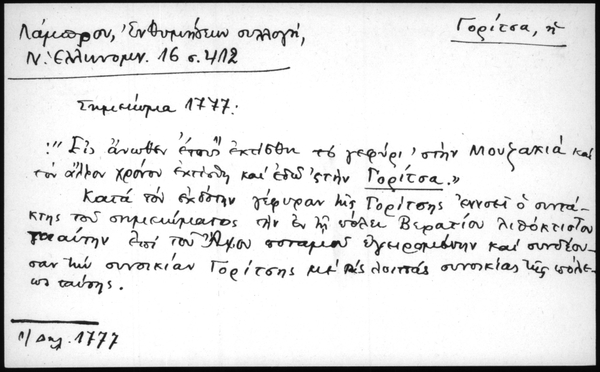 Λάμπρου, Ἐνθυμήσεων συλλογή,
Ν. Ἑλληνομν. 16 σ. 412
Γορίτσα, ἡ
Σημείωμα 1777:
"Εἰς ἄνωθεν ἔτους 1) ἐκτίσθη τὸ γεφύρι 'στὴν Μουζακιὰ καὶ
τὸν ἄλλον χρόνον ἐκτίσθη καὶ ἐδῶ 'ς τὴν Γορίτσα."
Κατὰ τὸν ἐκδότην γέφυραν τῆς Γορίτσης ἐννοεῖ ὁ συντά-
κτης τοῦ σημειώματος τὴν ἐν τῇ πόλει Βερατίου λιθόκτιστον
ταύτην ἐπὶ τοῦ Ἄψου ποταμοῦ ἐγειρομένην καὶ συνδέου-
σαν τὴν συνοικίαν Γορίτσης μὲ τὰς λοιπὰς συνοικίας τῆς πόλε-
ως ταύτης.
1/ Δηλ. 1777